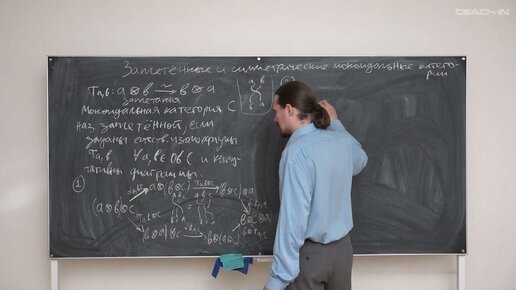 TEACH-IN
Заплетённые и симметрические моноидальные катего-
рии
τa,b: a⊗b ⥲ b⊗a
заплетания
Моноидальная категория C
наз. заплетённой, если
заданы естеств. изоморфизмы
τa,b ∀a,b∈Ob C и комму-
тативны диаграммы.
①
a b
b a
②
a⊗(b⊗c) τa,b⊗c (b⊗c)⊗a
(a⊗b)⊗c
a b c = a b c
b⊗(c⊗a)
(b⊗a)⊗c b⊗(a⊗c)